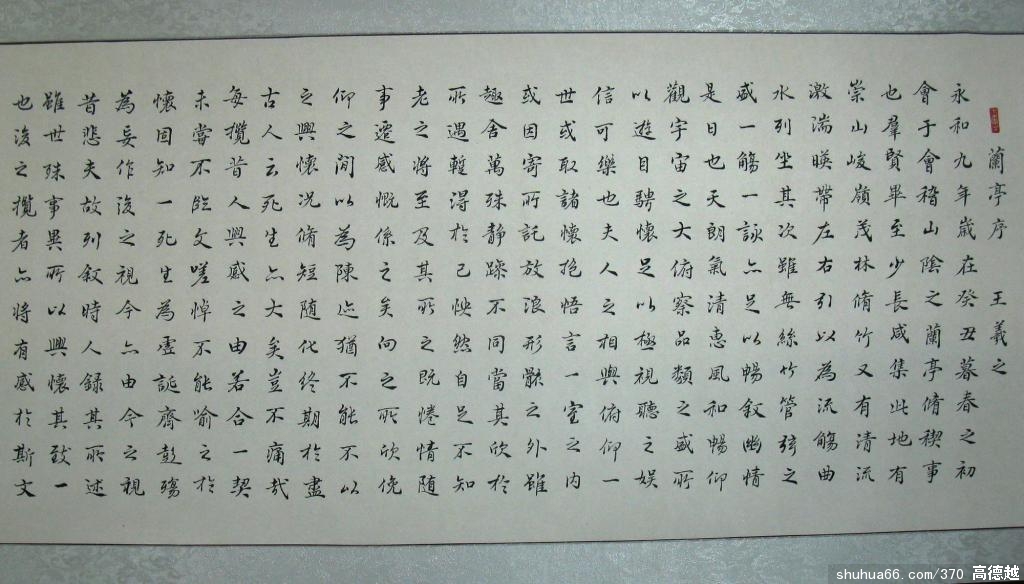 蘭亭序 王羲之
永和九年歲在癸丑暮春之初
會于會稽山陰之蘭亭脩禊事
也羣賢畢至少長咸集此地有
崇山峻嶺茂林脩竹又有清流
激湍暎帶左右引以為流觴曲
水列坐其次雖無絲竹管弦之
盛一觴一詠亦足以暢敘幽情
是日也天朗氣清惠風和暢仰
觀宇宙之大俯察品類之盛所
以遊目騁懷足以極視聽之娛
信可樂也夫人之相與俯仰一
世或取諸懷抱悟言一室之內
或因寄所託放浪形骸之外雖
趣舍萬殊静躁不同當其欣於
所遇暫得於己怏然自足不知
老之將至及其所之既惓情随
事遷感慨係之矣向之所欣俛
仰之間以為陳迹猶不能不以
之興懷況脩短随化終期於盡
古人云死生亦大矣豈不痛哉
每攬昔人興感之由若合一契
未嘗不臨文嗟悼不能喻之於
懷固知一死生為虛誕齊彭殤
為妄作後之視今亦由今之視
昔悲夫故列敘時人錄其所述
雖世殊事異所以興懷其致一
也後之攬者亦將有感於斯文
shuhua66.com/370 高德越